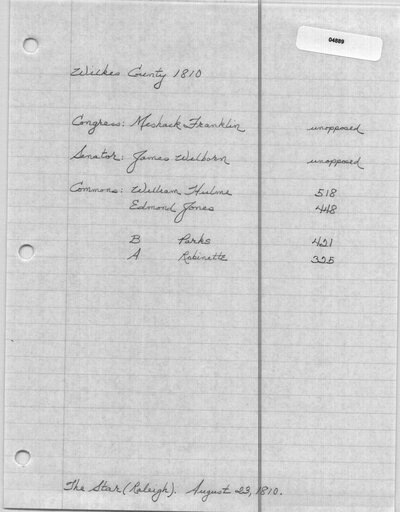 04889
Wilkes County 1810
Congress: Meshack Franklin unopposed
Senator: James Welborn unopposed
Commons: William Hulme 518
Edmond Jones 448
B Parks 421
A Robinette 325
The Star (Raleigh). August 23, 1810.